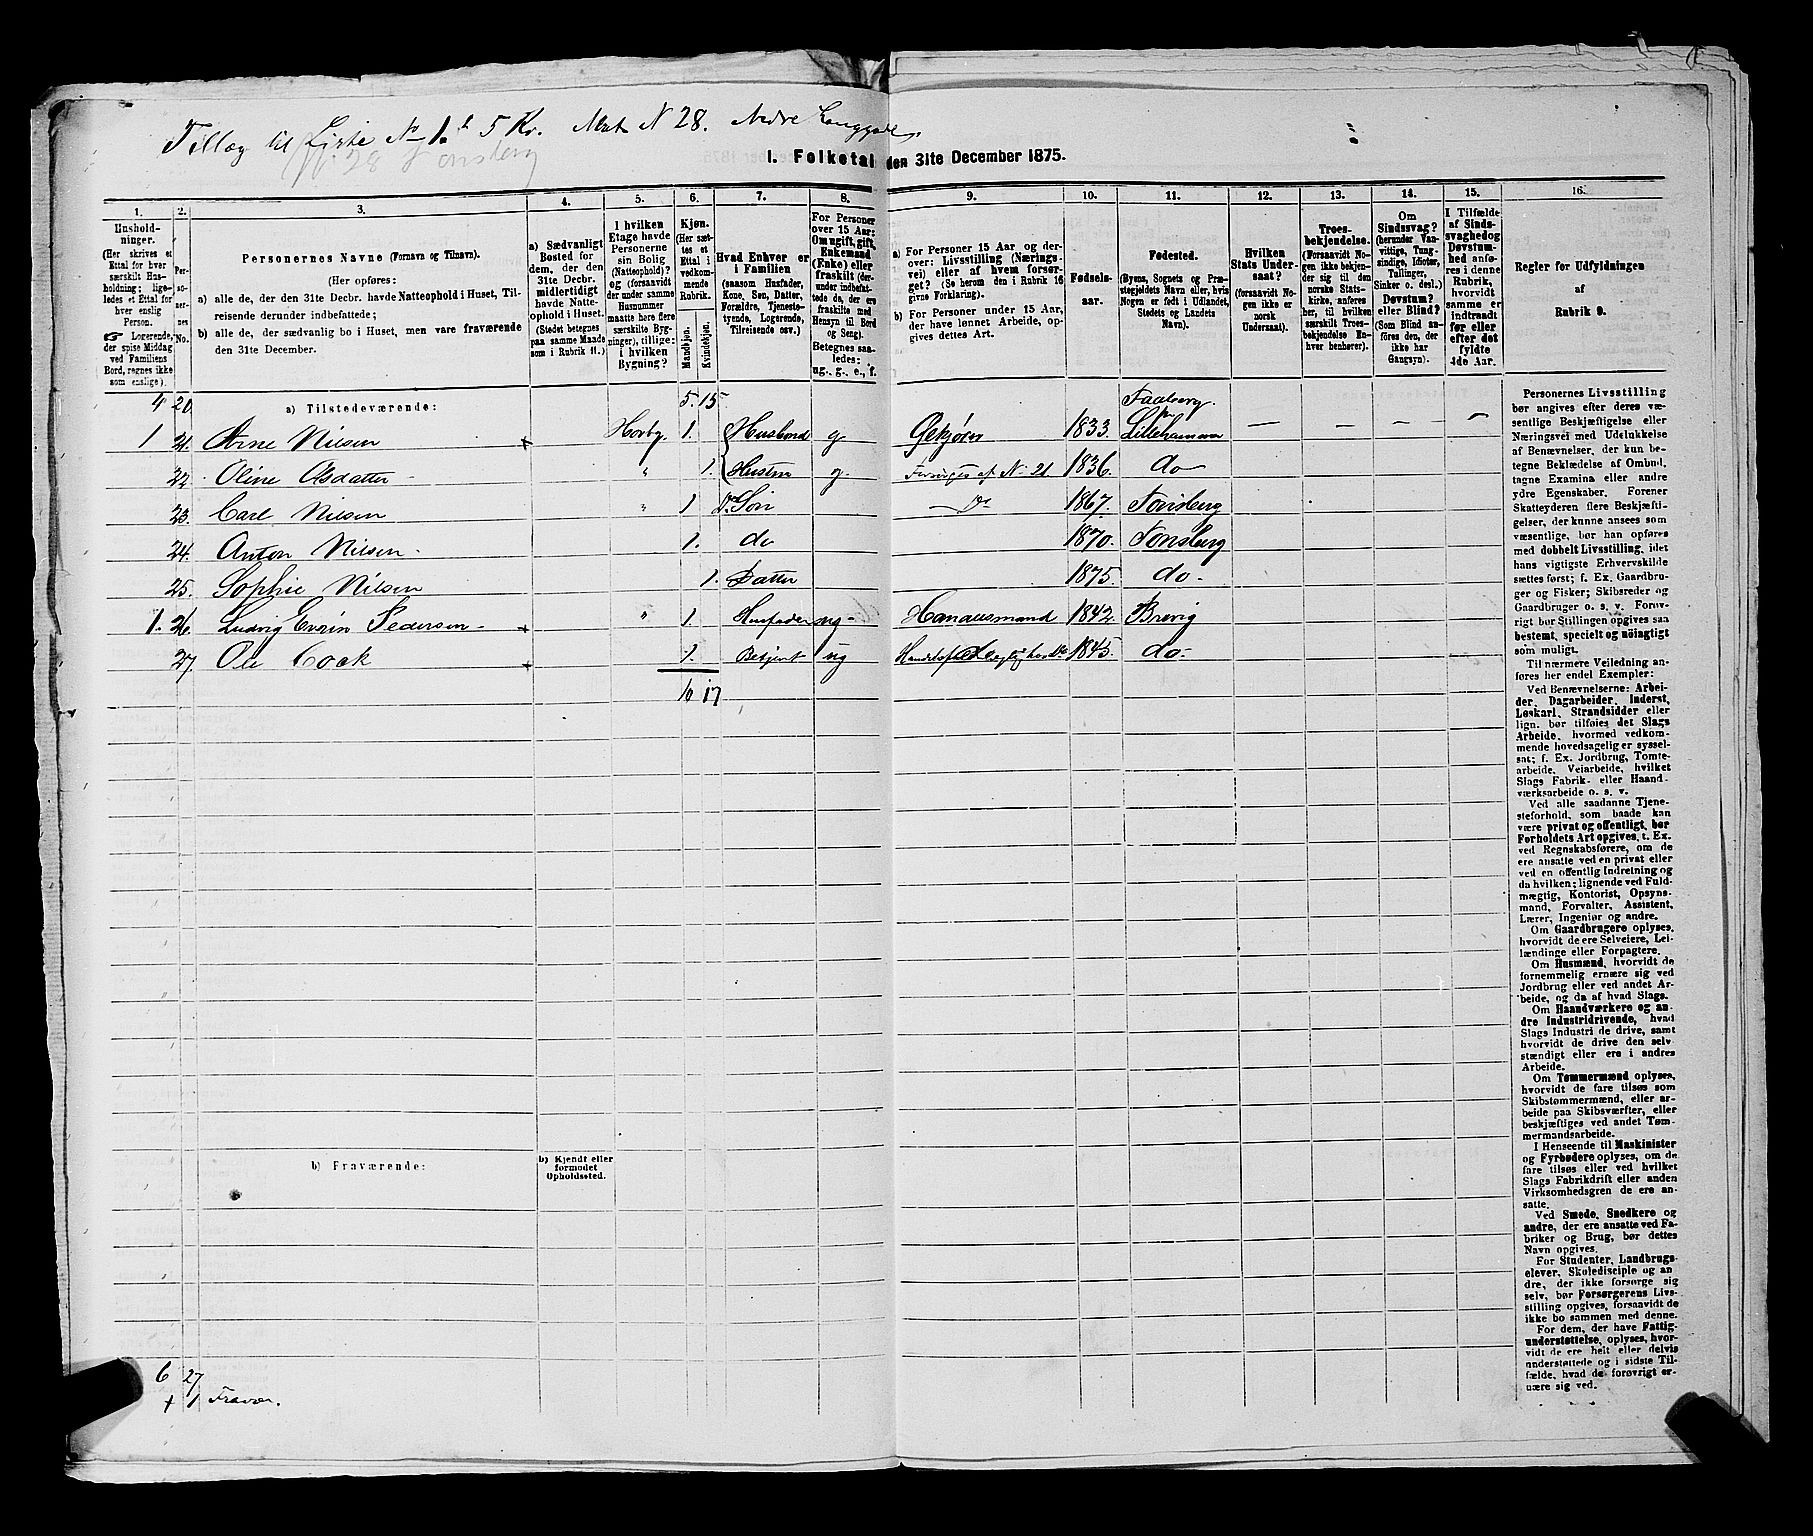 Tillæg til Liste No 1. 5 Kr. Mat N 28. Nedre Langgade,
No 28 Tønsberg
I. Folketal den 31te December 1875.
1. 2. 3. 4. 5. 6. 7. 8. 9. 10. 11. 12. 13. 14. 15. 16.
Husholdninger.
(Her skrives et Ettal for hver særskilt Husholdning; ligeledes et Ettal for hver enslig Person.
☞ Logerende, der spise Middag ved Familiens Bord, regnes ikke som enslige).
Personernes No.
Personernes Navne (Fornavn og Tilnavn).
(Her opføres:
a) alle de, der den 31te Decbr. havde Natteophold i Huset, Tilreisende derunder indbefattede;
b) alle de, der sædvanlig bo i Huset, men vare fraværende den 31te December.
a) Sædvanligt Bosted for dem, der den 31te Decbr. midlertidigt havde Natteophold i Huset.
(Stedet betegnes paa samme Maade som i Rubrik 11.)
I hvilken Etage havde Personerne sin Bolig (Natteophold)? og (forsaavidt der under samme Husnummer maatte høre flere særskilte Bygninger), tillige: i hvilken Bygning?
Kjøn.
(Her sættes et Ettal i vedkommende Rubrik.
Mandkjøn. Kvindekjøn.
Hvad Enhver er i Familien
(saasom Husfader, Kone, Søn, Datter, Forældre, Tjenestetyende, Logerende, Tilreisende osv.)
For Personer over 15 Aar: Om ugift, gift, Enkemand (Enke) eller fraskilt (derunder indbefattede de, der ere fraskilte med Hensyn til Bord og Seng).
Betegnes saaledes: ug., g., e., f.
a) For Personer 15 Aar og derover: Livsstilling (Næringsvei) eller af hvem forsørget? (Se herom den i Rubrik 16 givne Forklaring).
b) For Personer under 15 Aar, der have lønnet Arbeide, opgives dettes Art.
Fødselsaar.
Fødested.
(Byens, Sognets og Præstegjeldets Navn eller, hvis Nogen er født i Udlandet, Stedets og Landets Navn).
Hvilken Stats Undersaat?
(forsaavidt Nogen ikke er norsk Undersaat).
Troesbekjendelse.
(Forsaavidt Nogen ikke bekjender sig til den norske Statskirke, anføres her, til hvilken særskilt Troesbekjendelse Enhver henhører).
Om Sindssvag? (herunder Vanvittige, Tungsindige, Idioter, Tullinger, Sinker o. desl.)
Døvstum? eller Blind?
(Som Blind anføres den, der ikke har Gangsyn).
I Tilfælde af Sindssvaghed og Døvstumhed anføres i denne Rubrik, hvorvidt samme er indtraadt før eller efter det fyldte 4de Aar.
Regler for Udfyldningen af Rubrik 9.
4 20 a) Tilstedeværende: 5. 15 Faaberg
1 21. Arne Nilsen + Hovby. 1. Husbond g. 1833. Lillehammer — — — —
22 Oline Olsdatter " 1. Hustru g. Forsørges af N. 21 1836. do
23. Carl Nilsen " 1 Søn do 1867. Tønsberg
24. Anton Nilsen 1. do 1870. Tønsberg
25. Sophie Nilsen 1. Datter 1875. do
1. 26. Ludvig Evrin Pedersen + " 1. Husfader ug Handelsmand 1842 Brevig
27. Ole Cock + 1. Betjent ug 1845. do.
10 17
b) Fraværende:
b) Kjendt eller formodet Opholdssted.
6 27
+ 1 Fravær.
Personernes Livsstilling bør angives efter deres væsentlige Beskjæftigelse eller Næringsvei med Udelukkelse af Benævnelser, der kun betegne Beklædelse af Ombud, tagne Examina eller andre ydre Egenskaber. Forener Skatteyderen flere Beskjæftigelser, der kunne ansees som væsentlige, bør han opføres med dobbelt Livsstilling, idet hans vigtigste Erhvervskilde sættes først; f. Ex. Gaardbruger og Fisker; Skibsreder og Gaardbruger o. s. v. Forøvrigt bør Stillingen opgives saa bestemt, specielt og nøiagtigt som muligt.
Til nærmere Veiledning anføres her endel Exempler:
Ved Benævnelserne: Arbeider, Dagarbeider, Inderst, Løskarl, Strandsidder eller lign. bør tilføies det Slags Arbeide, hvormed vedkommende hovedsagelig er sysselsat; f. Ex. Jordbrug, Tomtearbeide, Veiarbeide, hvilket Slags Fabrik- eller Haandværksarbeide o. s. v.
Ved alle saadanne Tjenesteforhold, som baade kan være privat og offentligt, bør Forholdets Art opgives, t. Ex. ved Regnskabsførere, om de ere ansatte ved en privat eller ved en offentlig Indretning og da hvilken; lignende ved Fuldmægtig, Kontorist, Opsynsmand, Forvalter, Assistent, Lærer, Ingeniør og andre.
Om Gaardbrugere oplyses, hvorvidt de ere Selveiere, Leilændinge eller Forpagtere.
Om Husmænd, hvorvidt de fornemmelig ernære sig ved Jordbrug eller ved andet Arbeide, og da af hvad Slags.
Om Haandværkere og andre Industridrivende, hvad Slags Industri de drive, samt hvorvidt de drive den selvstændigt eller ere i andres Arbeide.
Om Tømmermænd oplyses, hvorvidt de fare tilsøs som Skibstømmermænd, eller arbeide paa Skibsværfter, eller beskjæftiges ved andet Tømmermandsarbeide.
I Henseende til Maskinister og Fyrbødere oplyses, om de fare tilsøs eller ved hvilket Slags Fabrikdrift eller anden Virksomhedsgren de ere ansatte.
Ved Smede, Snedkere og andre, der ere ansatte ved Fabriker og Brug, bør dettes Navn opgives.
For Studenter, Landbrugselever, Skoledisciple og andre, der ikke forsørge sig selv, bør Forsørgerens Livsstilling opgives, forsaavidt de ikke bo sammen med denne.
For dem, der have Fattigunderstøttelse, oplyses, hvorvidt de ere helt eller delvis understøttede og i sidste Tilfælde, hvad de forøvrigt ernære sig ved.